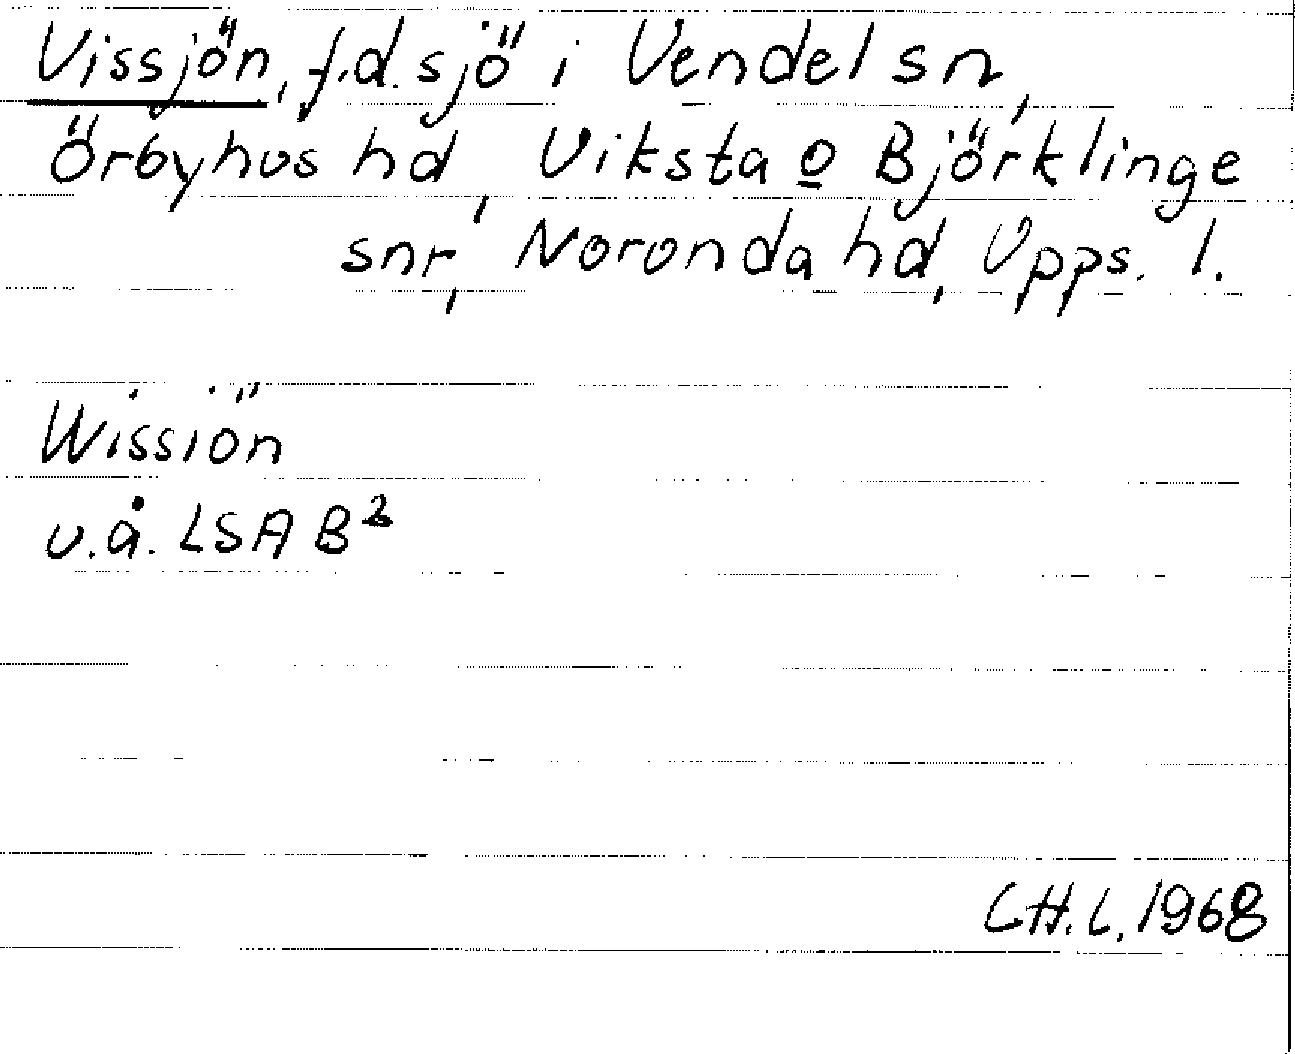 Vissjön, f.d. sjö i Vendel sn,
Örbyhus hd, Viksta o Björklinge
snr, Norunda hd, Upps. l.
Wissiön
u.å. LSA B²
CH.L. 1968